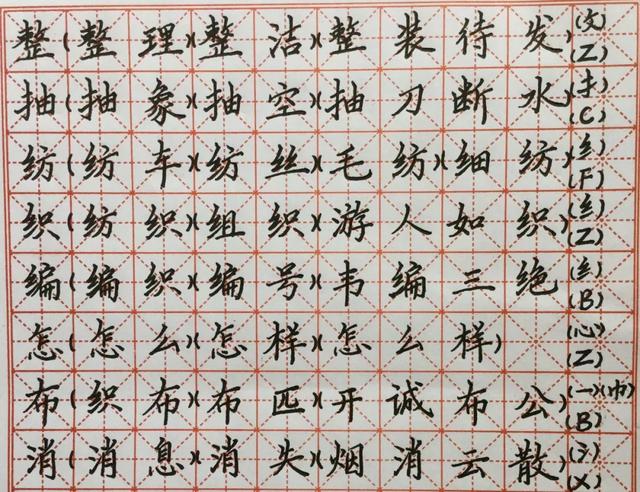 整(整理)(整洁)(整装待发)(攵)(Z)
抽(抽象)(抽空)(抽刀断水)(扌)(C)
纺(纺车)(纺丝)(毛纺)(细纺)(纟)(F)
织(纺织)(组织)(游人如织)(纟)(Z)
编(编织)(编号)(韦编三绝)(纟)(B)
怎(怎么)(怎样)(怎么样)(心)(Z)
布(织布)(布匹)(开诚布公)(一)(巾)(B)
消(消息)(消失)(烟消云散)(氵)(X)